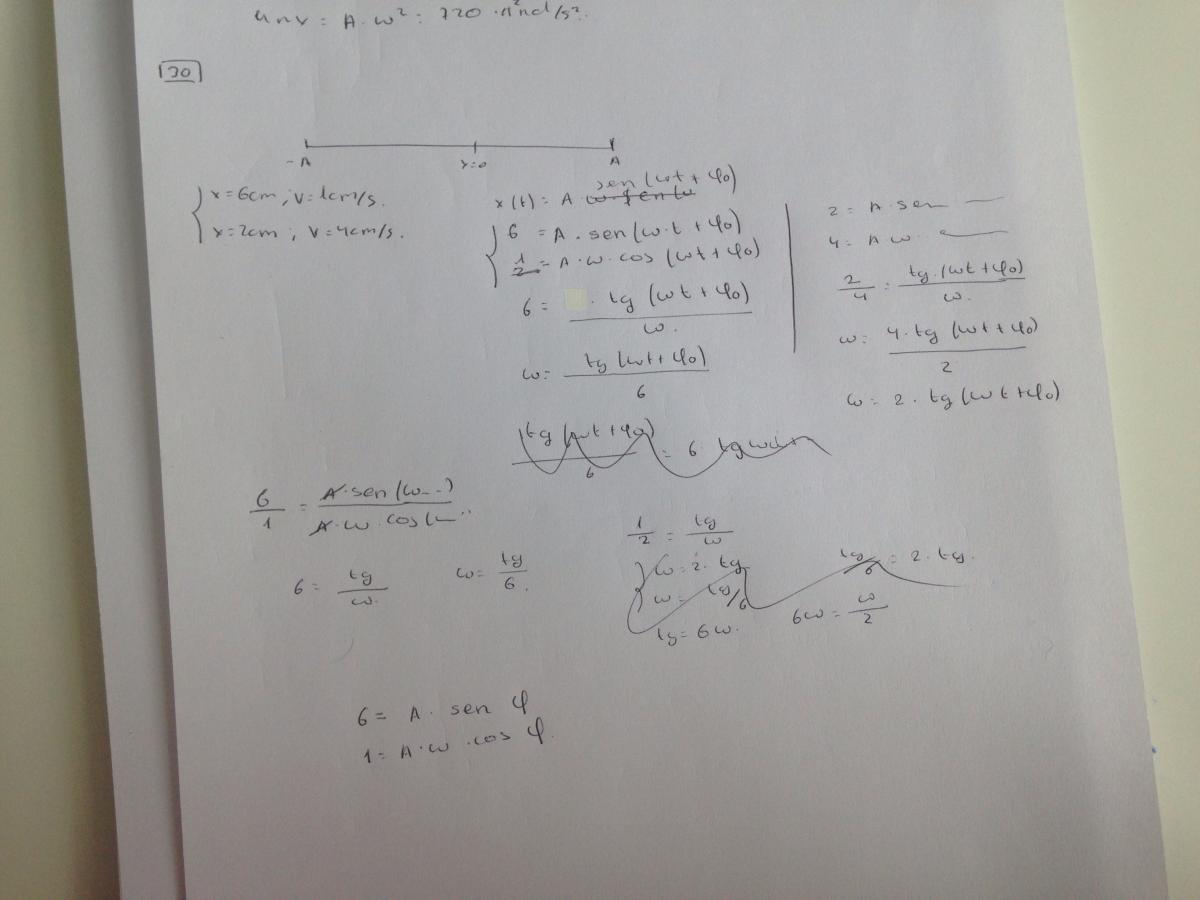 A · ω² = 720 · π² rad/s².
30
-A x=0 A
x=6cm ; v=1cm/s.
x=2cm ; v=4cm/s.
x(t) = A · sen(ωt + φ₀)
6 = A · sen(ω·t + φ₀)
= A·ω·cos(ωt + φ₀)
6 = · tg(ωt + φ₀) / ω.
ω = tg(ωt + φ₀) / 6
2 = A · sen —
4 = A·ω · —
2/4 = tg·(ωt + φ₀) / ω.
ω = 4·tg(ωt + φ₀) / 2
ω = 2 · tg(ωt + φ₀)
tg(ωt + φ₀) / 6 = 6 · tg
6/1 = A·sen(ω--) / A·ω·cos(
6 = tg/ω. ω = tg/6.
1/2 = tg/ω
ω = 2 · tg
ω = tg/6
tg = 6ω.
tg/6 = 2 · tg.
6ω = ω/2
6 = A · sen φ
1 = A·ω·cos φ.